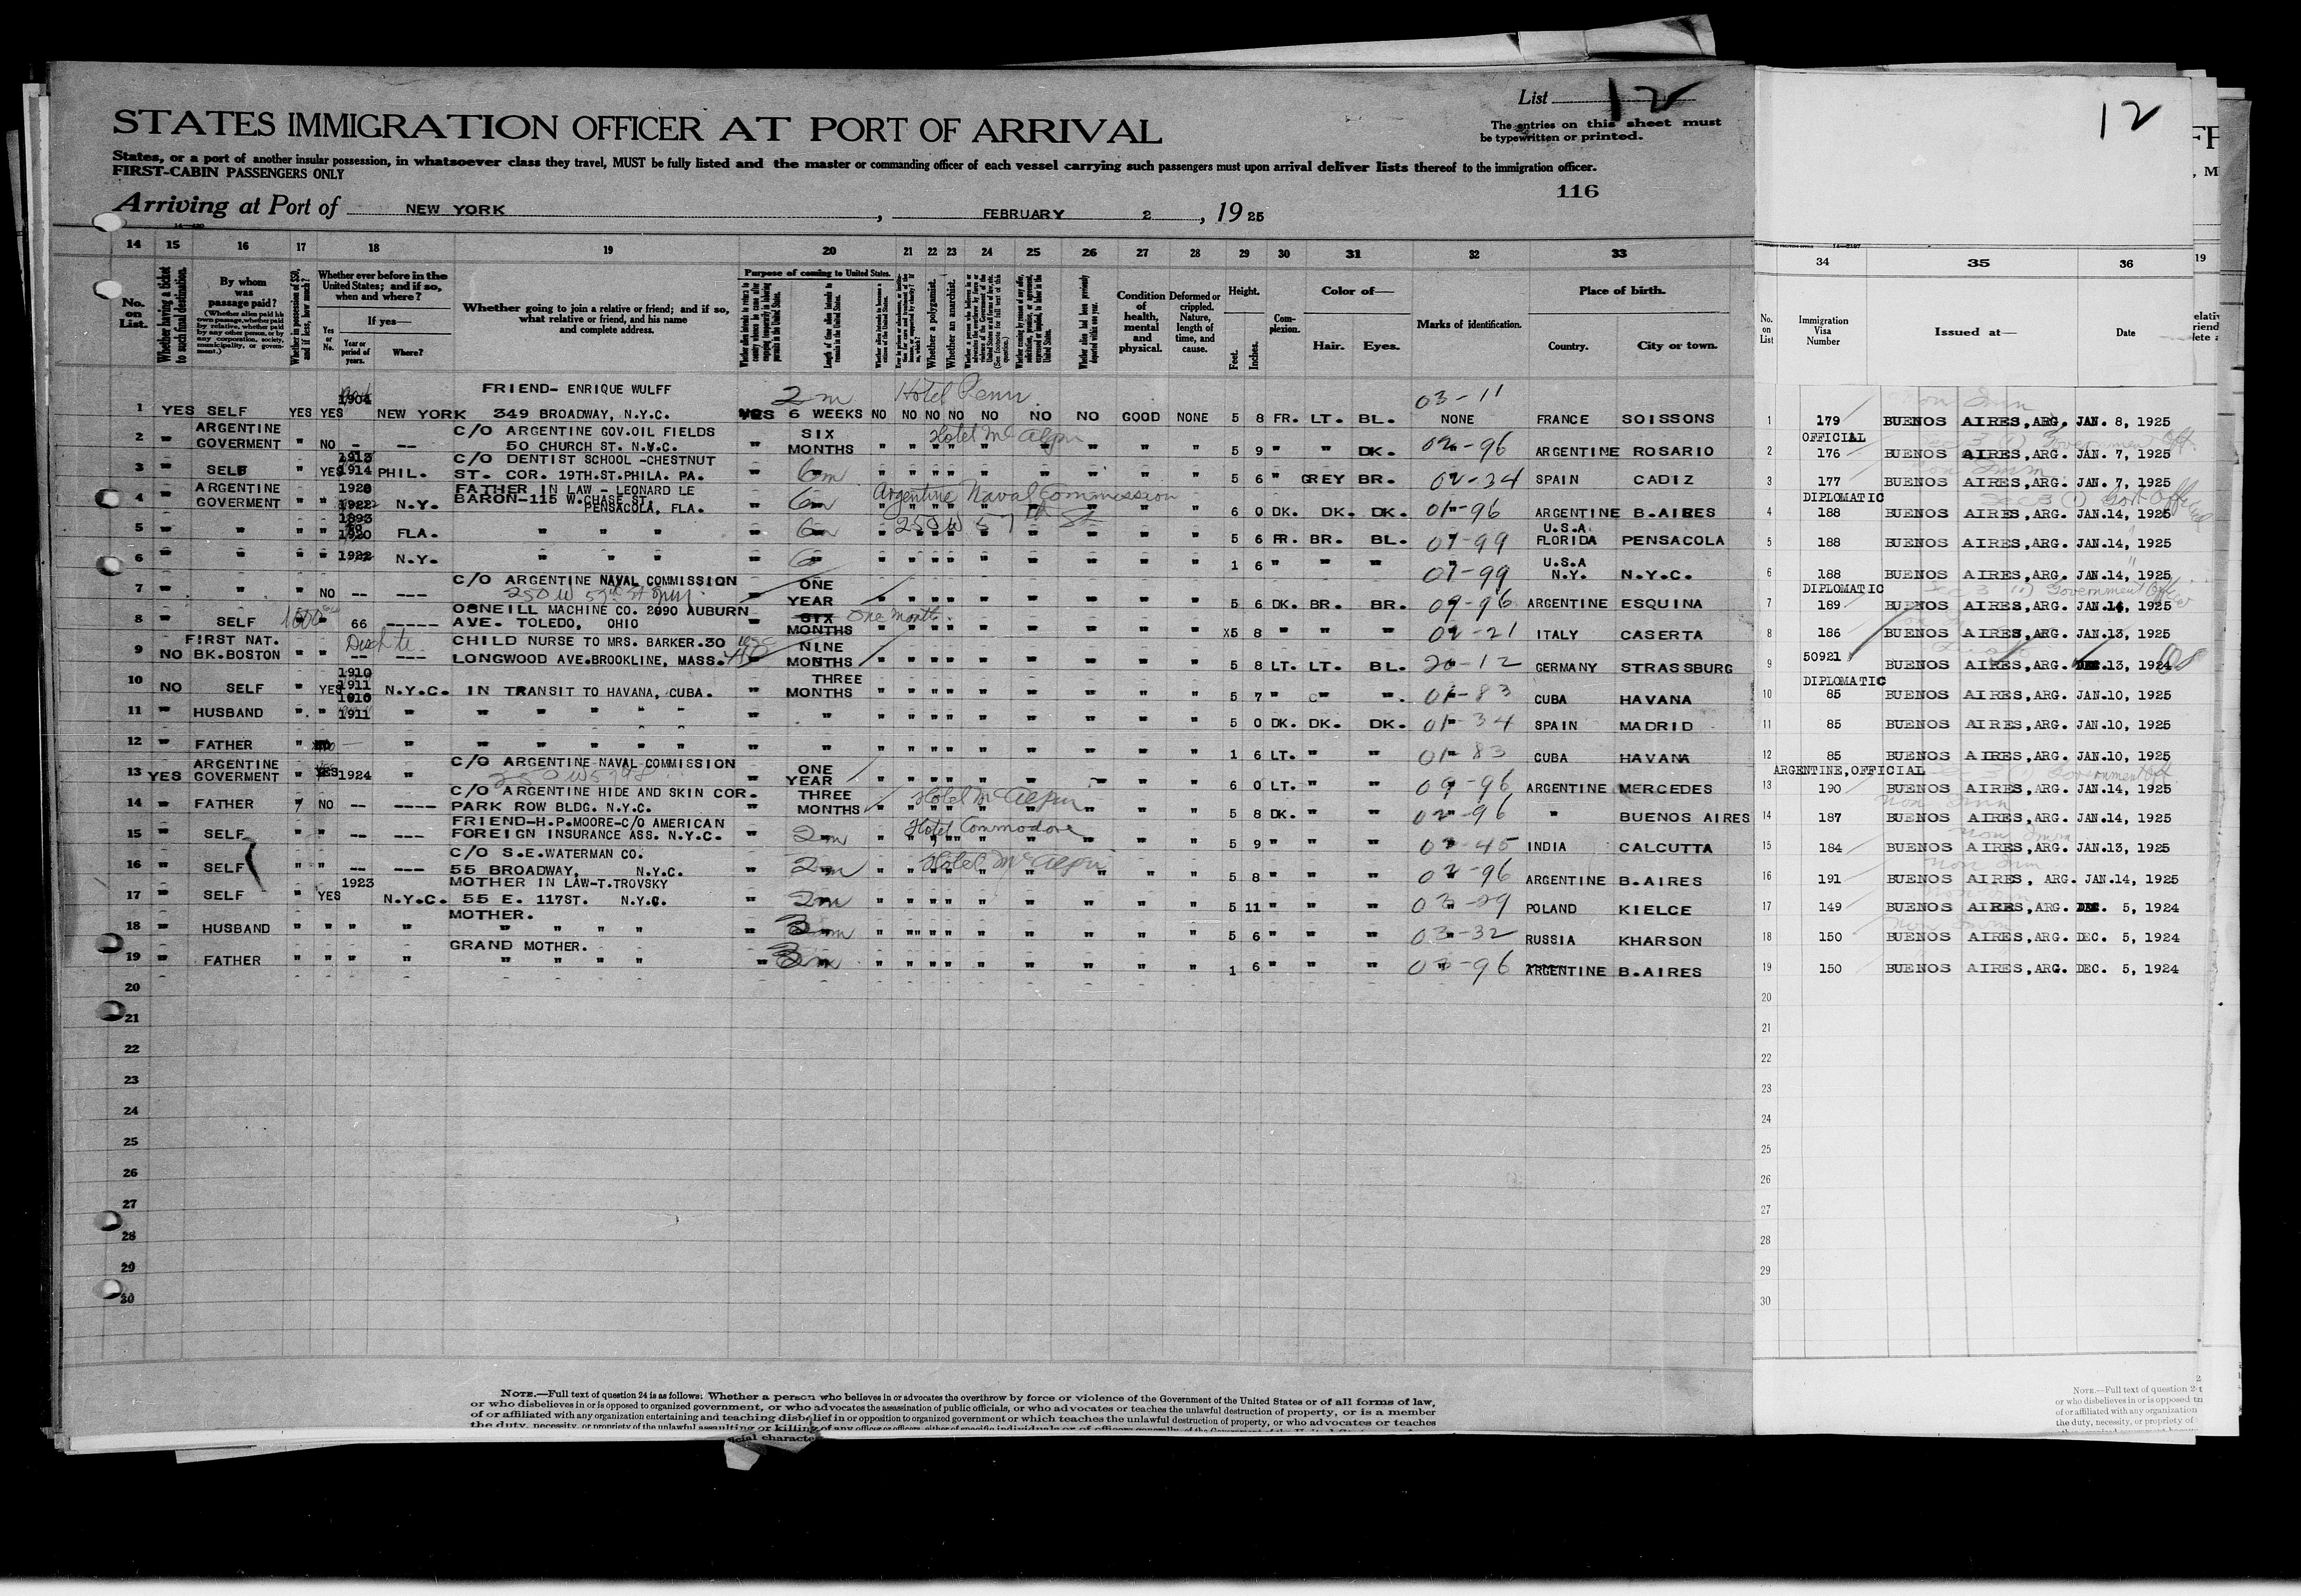 List 12
12
STATES IMMIGRATION OFFICER AT PORT OF ARRIVAL
The entries on this sheet must
be typewritten or printed.
States, or a port of another insular possession, in whatsoever class they travel, MUST be fully listed and the master or commanding officer of each vessel carrying such passengers must upon arrival deliver lists thereof to the immigration officer.
FIRST-CABIN PASSENGERS ONLY
116
Arriving at Port of NEW YORK, FEBRUARY 2, 19 25
14 15 16 17 18 19 20 21 22 23 24 25 26 27 28 29 30 31 32 33 34 35 36
No. on List.
Whether having a ticket to such final destination.
By whom was passage paid?
(Whether alien paid his own passage, whether paid by relative, whether paid by any other person, or by any corporation, society, municipality, or government.)
Whether in possession of $50, and if less, how much?
Whether ever before in the United States; and if so, when and where?
Yes or No.
If yes—
Year or period of years.
Where?
Whether going to join a relative or friend; and if so, what relative or friend, and his name and complete address.
Purpose of coming to United States.
Whether a polygamist.
Whether an anarchist.
Condition of health, mental and physical.
Deformed or crippled. Nature, length of time, and cause.
Height.
Feet. Inches.
Complexion.
Color of—
Hair. Eyes.
Marks of identification.
Place of birth.
Country. City or town.
No. on List
Immigration Visa Number
Issued at—
Date
FRIEND- ENRIQUE WULFF 2m Hotel Penn 03-11
1 YES SELF YES YES 1904 NEW YORK 349 BROADWAY, N.Y.C. YES 6 WEEKS NO NO NO NO NO NO NO GOOD NONE 5 8 FR. LT. BL. NONE FRANCE SOISSONS 1 179 BUENOS AIRES, ARG. JAN. 8, 1925
ARGENTINE C/O ARGENTINE GOV.OIL FIELDS SIX Hotel McAlpin OFFICIAL
2 " GOVERMENT " NO - -- 50 CHURCH ST. N.Y.C. " MONTHS 5 9 " " DK. 02-96 ARGENTINE ROSARIO 2 176 BUENOS AIRES, ARG. JAN. 7, 1925
1913 C/O DENTIST SCHOOL -CHESTNUT
3 " SELF " YES 1914 PHIL. ST. COR. 19TH.ST.PHILA. PA. " 6m 5 6 " GREY BR. 02-34 SPAIN CADIZ 3 177 BUENOS AIRES, ARG. JAN. 7, 1925
ARGENTINE 1920 FATHER IN LAW - LEONARD LE Argentine Naval Commission DIPLOMATIC
4 " GOVERMENT " " 1922 N.Y. BARON-115 W.CHASE ST. PENSACOLA, FLA. " 6m 6 0 DK. DK. DK. 01-96 ARGENTINE B.AIRES 4 188 BUENOS AIRES, ARG. JAN.14, 1925
1893 250 W 57th St U.S.A.
5 " " " " 1920 FLA. " " " " 6m 5 6 FR. BR. BL. 07-99 FLORIDA PENSACOLA 5 188 BUENOS AIRES, ARG. JAN.14, 1925
U.S.A
6 " " " " 1922 N.Y. " " " " 6 1 6 " " " 07-99 N.Y. N.Y.C. 6 188 BUENOS AIRES, ARG. JAN.14, 1925
C/O ARGENTINE NAVAL COMMISSION ONE DIPLOMATIC
7 " " " NO -- --- 250 W 57th St " YEAR 5 6 DK. BR. BR. 09-96 ARGENTINE ESQUINA 7 189 BUENOS AIRES, ARG. JAN.14, 1925
OSNEILL MACHINE CO. 2090 AUBURN SIX One month
8 " SELF 66 ----- AVE. TOLEDO, OHIO MONTHS X5 8 " " " 02-21 ITALY CASERTA 8 186 BUENOS AIRES, ARG. JAN.13, 1925
FIRST NAT. CHILD NURSE TO MRS. BARKER.30 NINE 50921
9 NO BK.BOSTON " " -- --- LONGWOOD AVE.BROOKLINE, MASS. MONTHS 5 8 LT. LT. BL. 20-12 GERMANY STRASSBURG 9 BUENOS AIRES, ARG. DEC.13, 1924
1910 THREE DIPLOMATIC
10 NO SELF " YES 1911 N.Y.C. IN TRANSIT TO HAVANA, CUBA. " MONTHS 5 7 " " 01-83 CUBA HAVANA 10 85 BUENOS AIRES, ARG. JAN.10, 1925
1910
11 " HUSBAND " " 1911 " " " " " " " " 5 0 DK. DK. DK. 01-34 SPAIN MADRID 11 85 BUENOS AIRES, ARG. JAN.10, 1925
12 " FATHER " NO " " " " " " " " 1 6 LT. " " 01-83 CUBA HAVANA 12 85 BUENOS AIRES, ARG. JAN.10, 1925
ARGENTINE C/O ARGENTINE NAVAL COMMISSION ONE ARGENTINE, OFFICIAL
13 YES GOVERMENT " YES 1924 " 250 W 57th St " YEAR 6 0 LT. " " 09-96 ARGENTINE MERCEDES 13 190 BUENOS AIRES, ARG. JAN.14, 1925
C/O ARGENTINE HIDE AND SKIN COR. THREE Hotel McAlpin
14 " FATHER " NO -- ---- PARK ROW BLDG. N.Y.C. " MONTHS 5 8 DK. " " 02-96 " BUENOS AIRES 14 187 BUENOS AIRES, ARG. JAN.14, 1925
FRIEND-H.P.MOORE-C/O AMERICAN Hotel Commodore
15 " SELF " " -- --- FOREIGN INSURANCE ASS. N.Y.C. " 2m 5 9 " " " 02-45 INDIA CALCUTTA 15 184 BUENOS AIRES, ARG. JAN.13, 1925
C/O S.E.WATERMAN CO. Hotel McAlpin
16 " SELF " " -- --- 55 BROADWAY, N.Y.C. " 2m 5 8 " " " 02-96 ARGENTINE B.AIRES 16 191 BUENOS AIRES, ARG. JAN.14, 1925
1923 MOTHER IN LAW-T.TROVSKY
17 " SELF " YES N.Y.C. 55 E. 117ST. N.Y.C. " 2m 5 11 " " " 03-29 POLAND KIELCE 17 149 BUENOS AIRES, ARG. DEC. 5, 1924
MOTHER.
18 " HUSBAND " " " " " " " " " 3m 5 6 " " " 03-32 RUSSIA KHARSON 18 150 BUENOS AIRES, ARG. DEC. 5, 1924
GRAND MOTHER.
19 " FATHER " " " " " " " " " 3m 1 6 " " " 03-96 ARGENTINE B.AIRES 19 150 BUENOS AIRES, ARG. DEC. 5, 1924
20 20
21 21
22 22
23 23
24 24
25 25
26 26
27 27
28 28
29 29
30 30
NOTE.—Full text of question 24 is as follows: Whether a person who believes in or advocates the overthrow by force or violence of the Government of the United States or of all forms of law,
or who disbelieves in or is opposed to organized government, or who advocates the assassination of public officials, or who advocates or teaches the unlawful destruction of property, or is a member
of or affiliated with any organization entertaining and teaching disbelief in or opposition to organized government or which teaches the unlawful destruction of property, or who advocates or teaches
the duty, necessity, or propriety of the unlawful assaulting or killing of any officer or officers, either of specific individuals or of officers generally, of the Government of the United
NOTE.—Full text of question 24
or who disbelieves in or is opposed to
of or affiliated with any organization
the duty, necessity, or propriety of